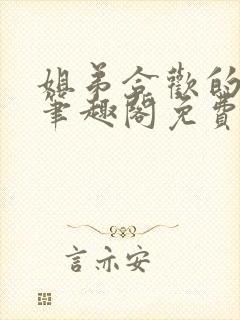 姐弟合歡的
筆趣閣免費
言亦安